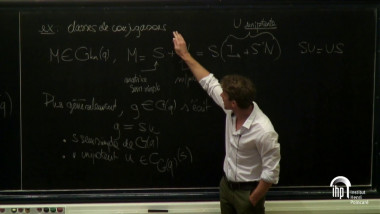 ex: classes de conjugaison
U unipotente
M ∈ GLn(q), M = S = S(In + S⁻¹N) SU = US
matrice
Plus généralement, g ∈ G(q) s'écrit
g = su
• s semisimple de G(q)
• u unipotent u ∈ C_G(q)(s)
ihp
Institut
Henri
Poincaré